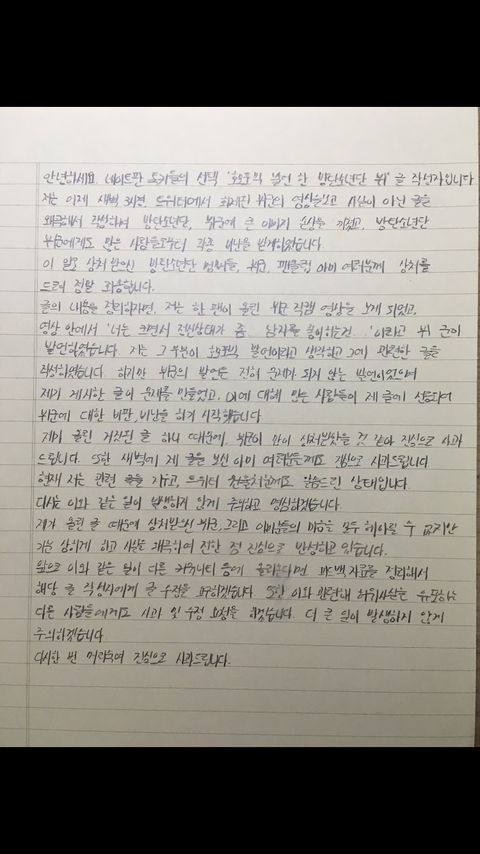 안녕하세요 네이트판 톡커들의 선택 '호모포빅 발언 한 방탄소년단 뷔' 글 작성자입니다
저는 어제 새벽 3시경, 트위터에서 화제된 뷔군의 영상을보고 사실이 아닌 글을
왜곡해서 작성하여 방탄소년단, 뷔군에 큰 이미지 손상을 끼쳤고, 방탄소년단
뷔군에게도 많은 사람들로부터 각종 비난을 받게하였습니다.
이 일로 상처받았을 방탄소년단 멤버들, 뷔군, 팬클럽 아미 여러분께 상처를
드려 정말 죄송합니다.
글의 내용을 정리하자면, 저는 한 팬이 올린 뷔군 직캠 영상을 보게 되었고,
영상 안에서 '너는 크면서 정신상태가 좀 남자를 좋아하는건..'이라고 뷔 군이
발언하였습니다. 저는 그 부분이 호모포빅 발언이라고 생각하고 그에 관련한 글을
작성하였습니다. 하지만 뷔군의 발언은 전혀 문제가 되지 않는 발언이었으며
제가 게시한 글이 문제를 만들었고, 이에 대해 많은 사람들이 제 글에 선동되어
뷔군에 대한 비판, 비난을 하기 시작했습니다
제가 올린 거짓된 글 하나 때문에, 뷔군이 많이 상처받았을 것 같아 진심으로 사과
드립니다. 또한 새벽에 제 글을 보신 아미 여러분들께도 진심으로 사과드립니다
현재 저는 관련 글들을 지우고, 트위터 총공총계에도 말씀드린 상태입니다.
다시는 이와 같은 일이 발생하지 않게 주의하고 명심하겠습니다.
제가 올린 글 때문에 상처받았을 뷔군, 그리고 아미분들의 마음을 모두 헤아릴 수 없지만
기분 상하게 하고 사실을 왜곡하여 전한 점 진심으로 반성하고 있습니다.
앞으로 이와 같은 글이 다른 커뮤니티 등에 올라온다면 피드백 자료를 정리해서
해당 글 작성자에게 글 수정을 요구하겠습니다. 또한 이와 관련해 허위사실을 유포하는
다른 사람들에게도 사과 및 수정 요청을 하겠습니다. 더 큰 일이 발생하지 않게
주의하겠습니다
다시한 번 머리숙여 진심으로 사과드립니다.